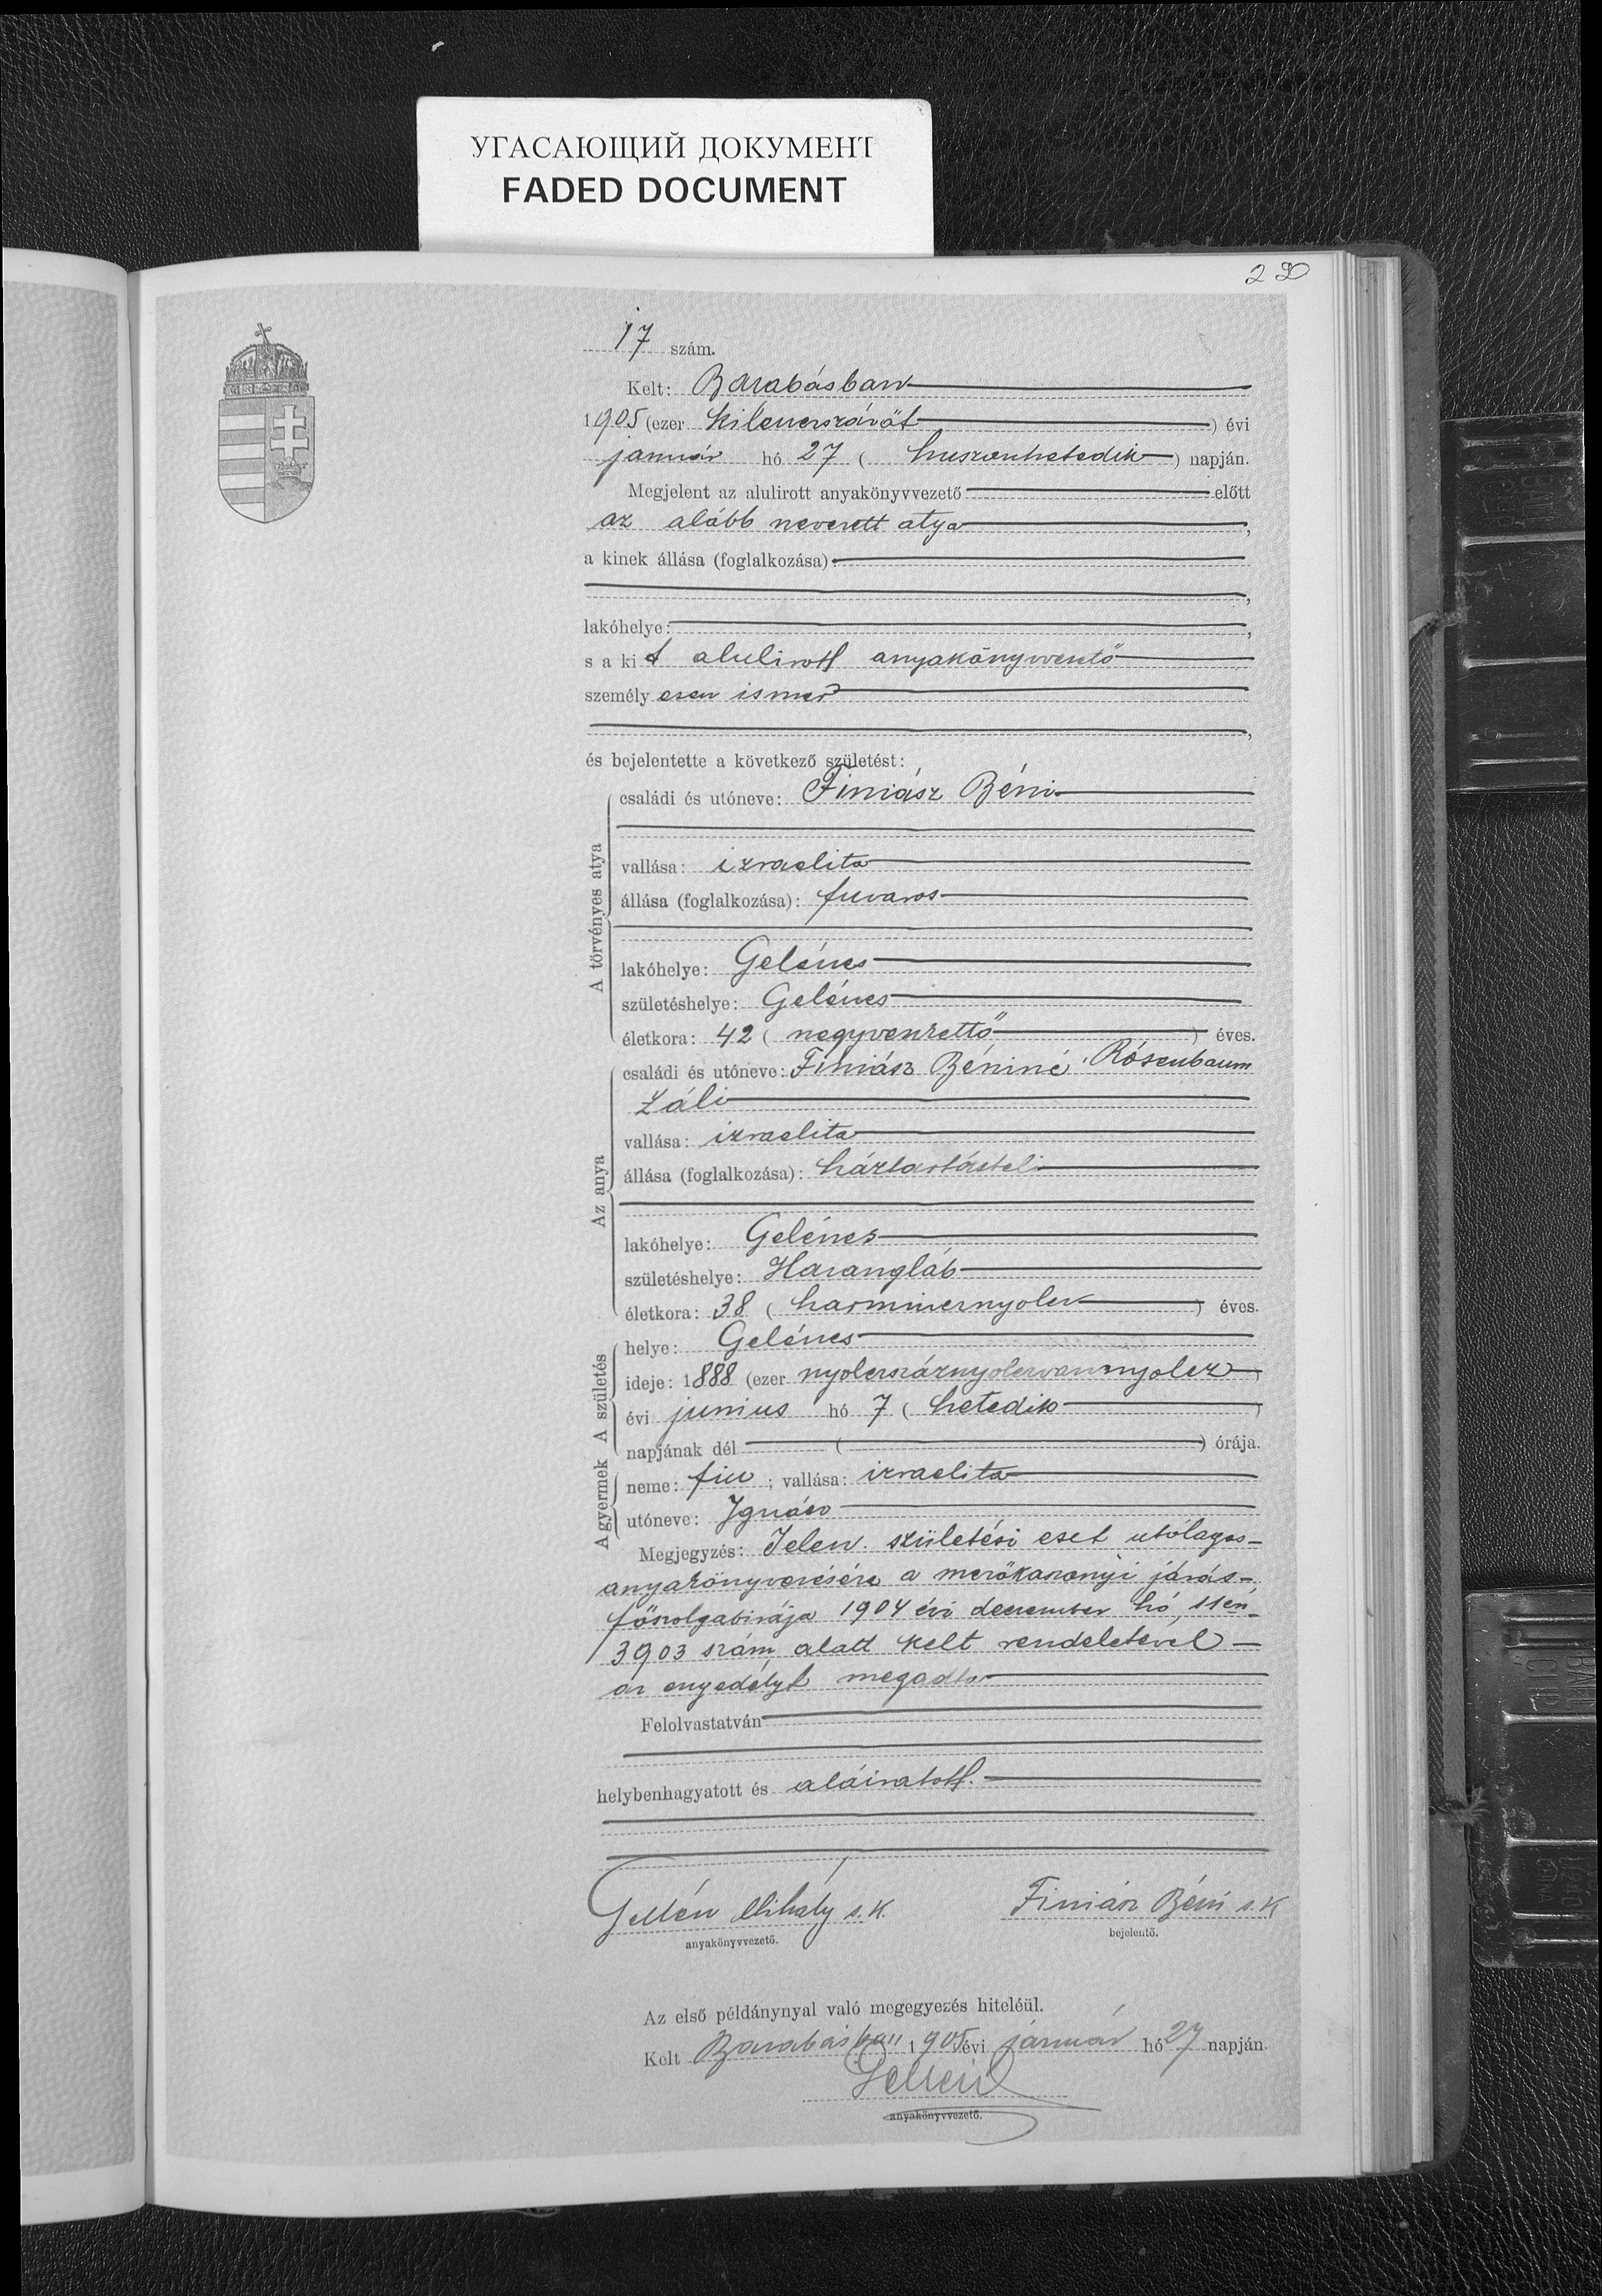 УГАСАЮЩИЙ ДОКУМЕНТ
FADED DOCUMENT
290
17 szám.
Kelt: Barabásban
1905 (ezer kilenczszázöt ) évi
január hó 27 ( huszonhetedik ) napján.
Megjelent az alulirott anyakönyvvezető előtt
az alább nevezett atya ,
a kinek állása (foglalkozása):
,
lakóhelye: ,
s a kit alulirott anyakönyvvezető
személyesen ismer
,
és bejelentette a következő születést:
A törvényes atya
családi és utóneve: Finiász Béni
vallása: izraelita
állása (foglalkozása): fuvaros
lakóhelye: Gelénes
születéshelye: Gelénes
életkora: 42 ( negyvenkettő ) éves.
Az anya
családi és utóneve: Finiász Béniné Rósenbaum
Záli
vallása: izraelita
állása (foglalkozása): háztartásteli
lakóhelye: Gelénes
születéshelye: Harangláb
életkora: 38 ( harmincznyolcz ) éves.
A születés
helye: Gelénes
ideje: 1888 (ezer nyolczszáznyolczvannyolcz )
évi junius hó 7 ( hetedik )
napjának dél ( ) órája.
A gyermek
neme: fiu ; vallása: izraelita
utóneve: Ignácz
Megjegyzés: Jelen születési eset utólagos
anyakönyvezésére a mezőkaszonyi járás
főszolgabirája 1904 évi deczember hó 11én
3903 szám alatt kelt rendeletével
az engedélyt megadta
Felolvastatván
helybenhagyatott és aláiratott.
Gellén Mihály s.k. Finiász Béni s.k
anyakönyvvezető. bejelentő.
Az első példánynyal való megegyezés hiteléül.
Kelt Barabásban 1905 évi január hó 27 napján.
Gellén
anyakönyvvezető.